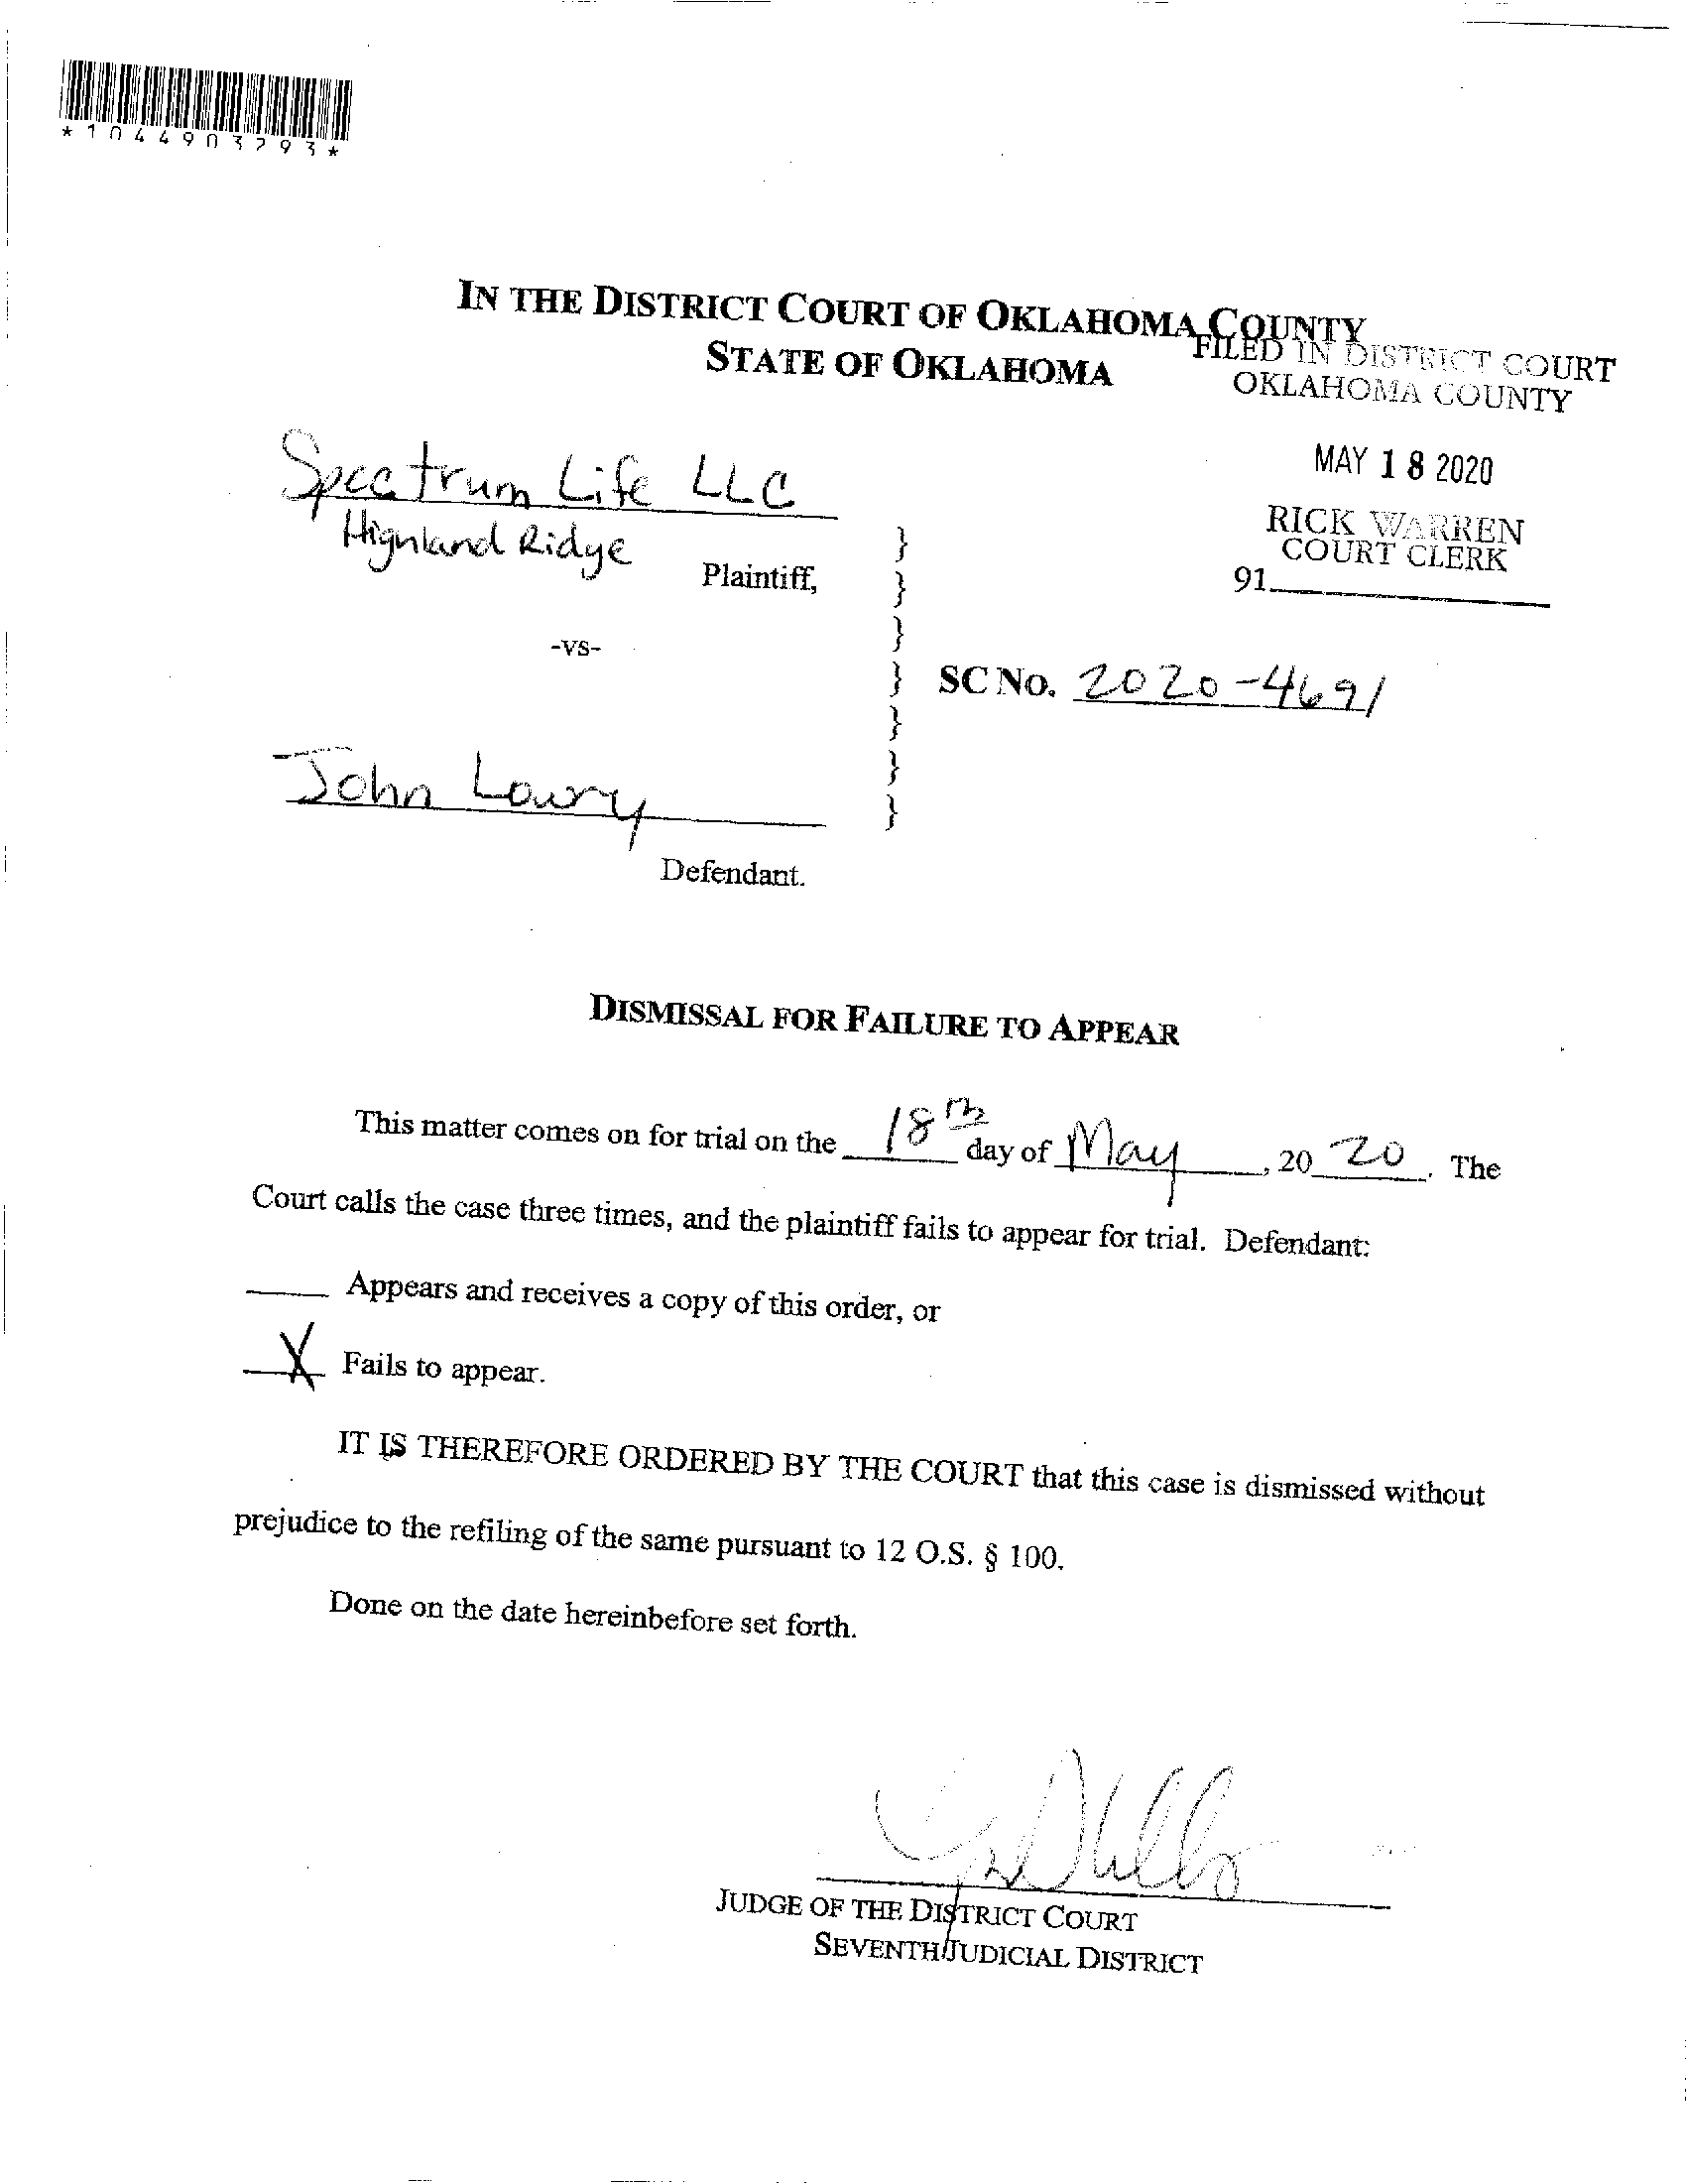 *1044903293*
IN THE DISTRICT COURT OF OKLAHOMA COUNTY
STATE OF OKLAHOMA
FILED IN DISTRICT COURT
OKLAHOMA COUNTY
MAY 18 2020
RICK WARREN
COURT CLERK
91
Spectrum Life LLC
Highland Ridge
Plaintiff, }
}
-vs- }
} SC NO. 2020-4691
}
John Lowry }
}
Defendant.
DISMISSAL FOR FAILURE TO APPEAR
This matter comes on for trial on the 18th day of May, 20 20. The
Court calls the case three times, and the plaintiff fails to appear for trial. Defendant:
____ Appears and receives a copy of this order, or
X Fails to appear.
IT IS THEREFORE ORDERED BY THE COURT that this case is dismissed without
prejudice to the refiling of the same pursuant to 12 O.S. § 100.
Done on the date hereinbefore set forth.
JUDGE OF THE DISTRICT COURT
SEVENTH JUDICIAL DISTRICT